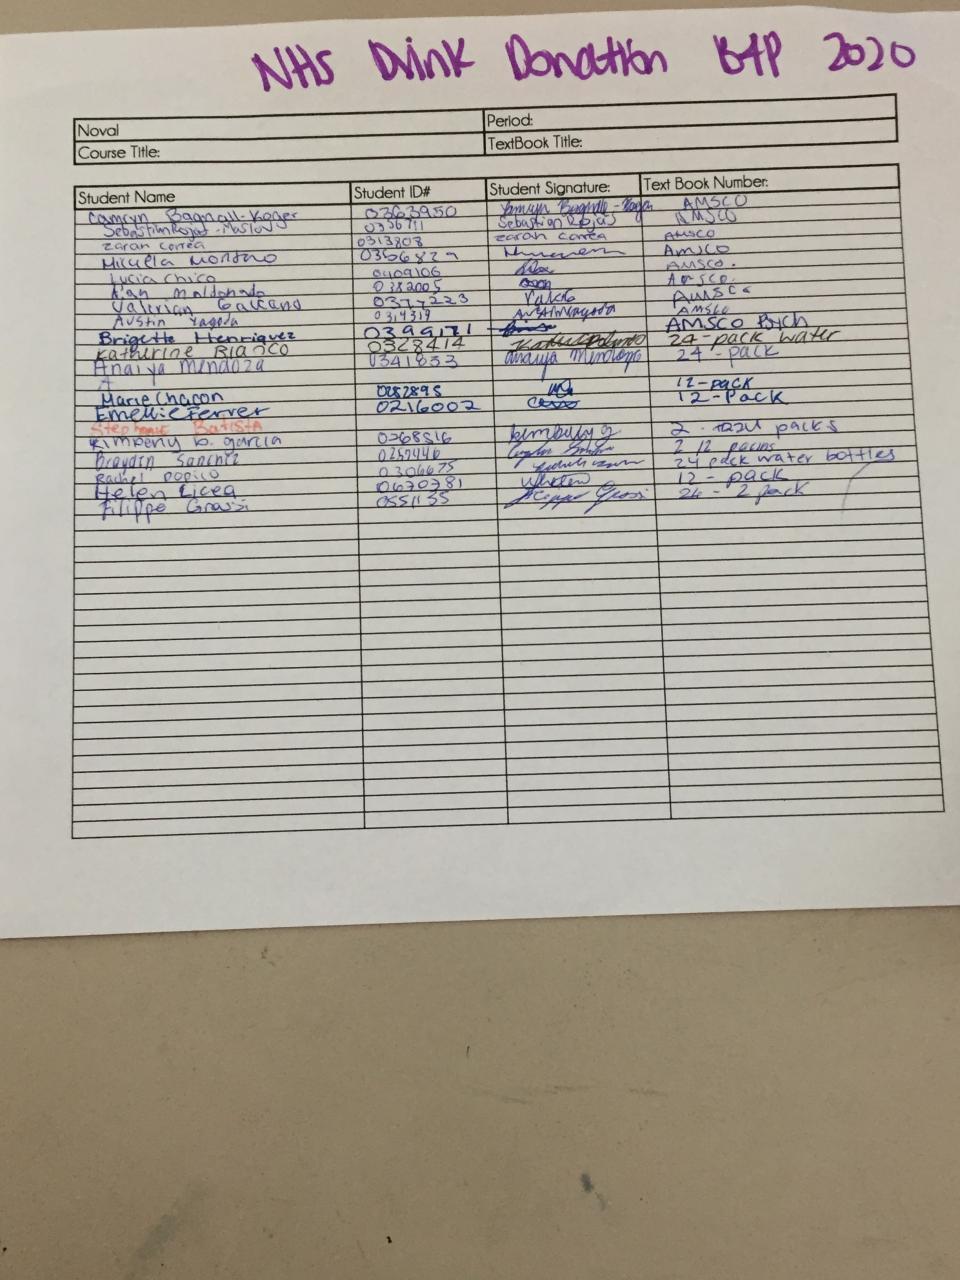 NHS Drink Donation B4P 2020
Noval Period:
Course Title: TextBook Title:
Student Name Student ID# Student Signature: Text Book Number:
Camryn Bagnall-Koger 0363950 Camryn Bagnall-Koger AMSCO
Sebastian Rojas-Maslov 0336711 Sebastian Rojas AMSCO
zarah correa 0313808 zarah correa AMSCO
Micaela Montano 0356829 AMSCO
Lucia Chico 0409106 AMSCO.
Alan Maldonado 0382005 AMSCO.
Valerian Galeano 0377223 AMSCO
Austin Yagoda 0314319 Austin Yagoda AMSCO
Brigette Henriquez 0399171 AMSCO Psych
Katherine Blanco 0328414 24-pack water
Anaiya Mendoza 0341833 anaiya Mendoza 24-pack
A
Marie Chacon 0282895 12-pack
Emellie Ferrer 0216002 12-Pack
Stephanie Batista
Kimberly b. garcia 0268516 kimberly g 2 packs
Braydin Sanchez 0259446 2 12 packs
Rachel Popico 0306675 24 pack water bottles
Helen Licea 0670781 12-pack
Filippo Grossi 0551135 Filippo Grossi 24-2 pack